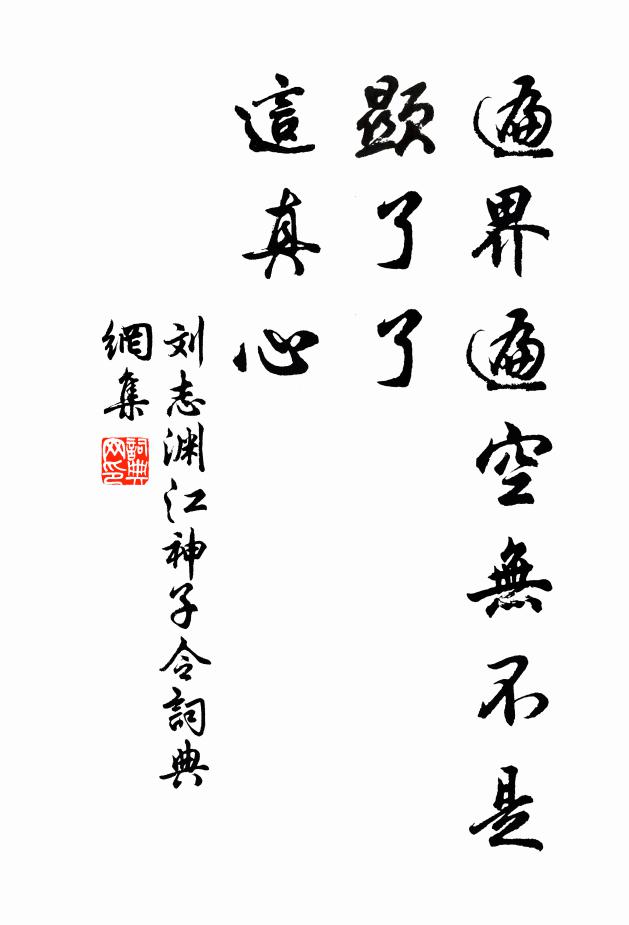 遍界遍空無不是
顯了了
這真心
刘志渊江神子令詞典
網集
詞典
网印